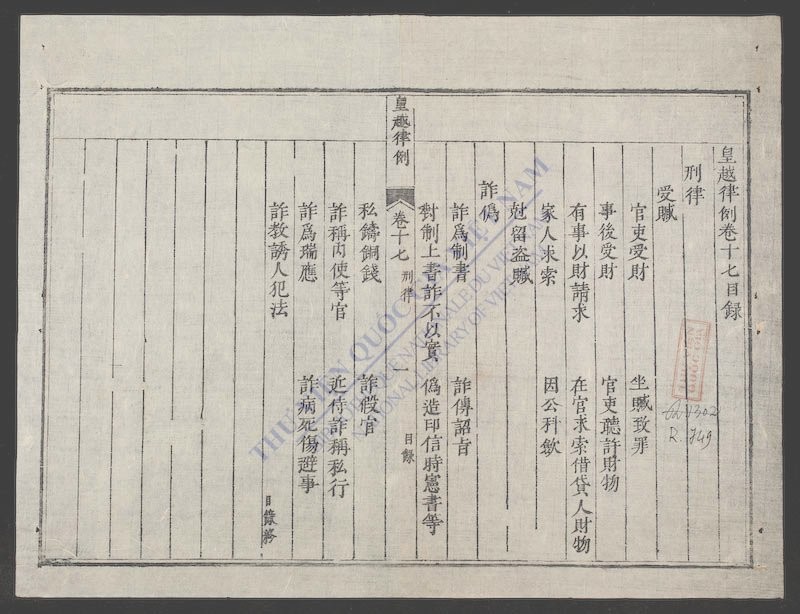 皇越律例卷十七目録
刑律
受贓
官吏受財　坐贓致罪
事後受財　官吏聽許財物
有事以財請求　在官求索借貸人財物
家人求索　因公科歛
尅留盜贓
詐偽
詐為制書　詐傳詔旨
對制上書詐不以實　偽造印信時憲書等
皇越律例　卷十七　刑律　一　目録
私鑄銅錢　詐假官
詐稱内使等官　近侍詐稱私行
詐為瑞應　詐病死傷避事
詐教誘人犯法
目録終
R. 749
THƯ VIỆN QUỐC GIA VIỆT NAM
BIBLIOTHÈQUE NATIONALE DU VIETNAM
NATIONAL LIBRARY OF VIETNAM